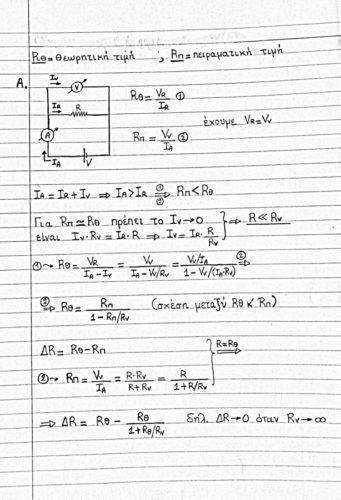 Rθ = θεωρητική τιμή , Rπ = πειραματική τιμή
A.
Iv
V
IR R
A
IA V
Rθ = VR/IR ①
Rπ = Vv/IA ②
έχουμε VR = Vv
IA = IR + Iv ⇒ IA > IR ①⇒② Rπ < Rθ
Για Rπ ≃ Rθ πρέπει το Iv → 0
είναι Iv·Rv = IR·R ⇒ Iv = IR·R/Rv } ⇒ R ≪ Rv
① ⤳ Rθ = VR/(IA - Iv) = Vv/(IA - Vv/Rv) = (Vv/IA)/(1 - Vv/(IA·Rv)) ②⇒
②⇒ Rθ = Rπ/(1 - Rπ/Rv) (σχέση μεταξύ Rθ κ' Rπ)
ΔR = Rθ - Rπ
② ⤳ Rπ = Vv/IA = R·Rv/(R + Rv) = R/(1 + R/Rv) } R=Rθ⇒
⇒ ΔR = Rθ - Rθ/(1 + Rθ/Rv) δηλ. ΔR → 0 όταν Rv → ∞